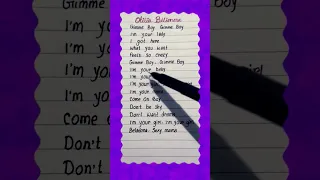 Gimme Boy Gimme Boy
I'm your lady
I got here
what you want
Feels so crazy
Gimme Boy.. Gimme Boy
I'm your baby
I'm your
I'm your
I'm your
Come on Boy
Don't be shy
Don't want drama
I'm your girl, I'm your girl
Sexy mama
I'm you
I'm y
I'm y
Come o
Don't
Don't